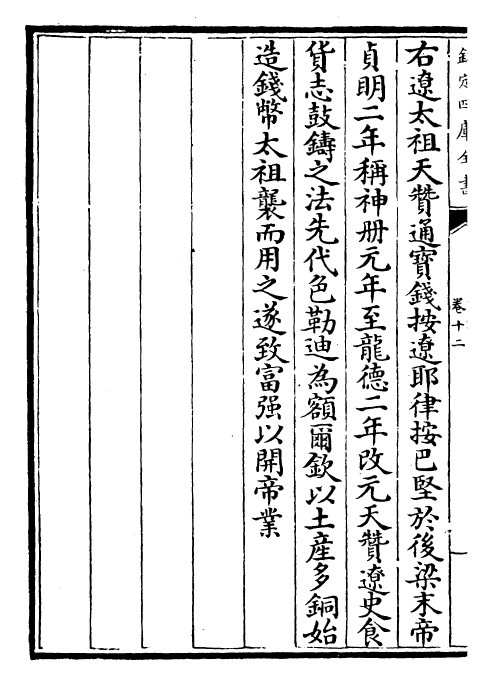 欽定四庫全書
卷十二
右遼太祖天贊通寶錢按遼耶律按巴堅於後梁末帝
貞明二年稱神册元年至龍德二年改元天贊遼史食
貨志鼓鑄之法先代色勒迪為額爾欽以土産多銅始
造錢幣太祖襲而用之遂致富强以開帝業